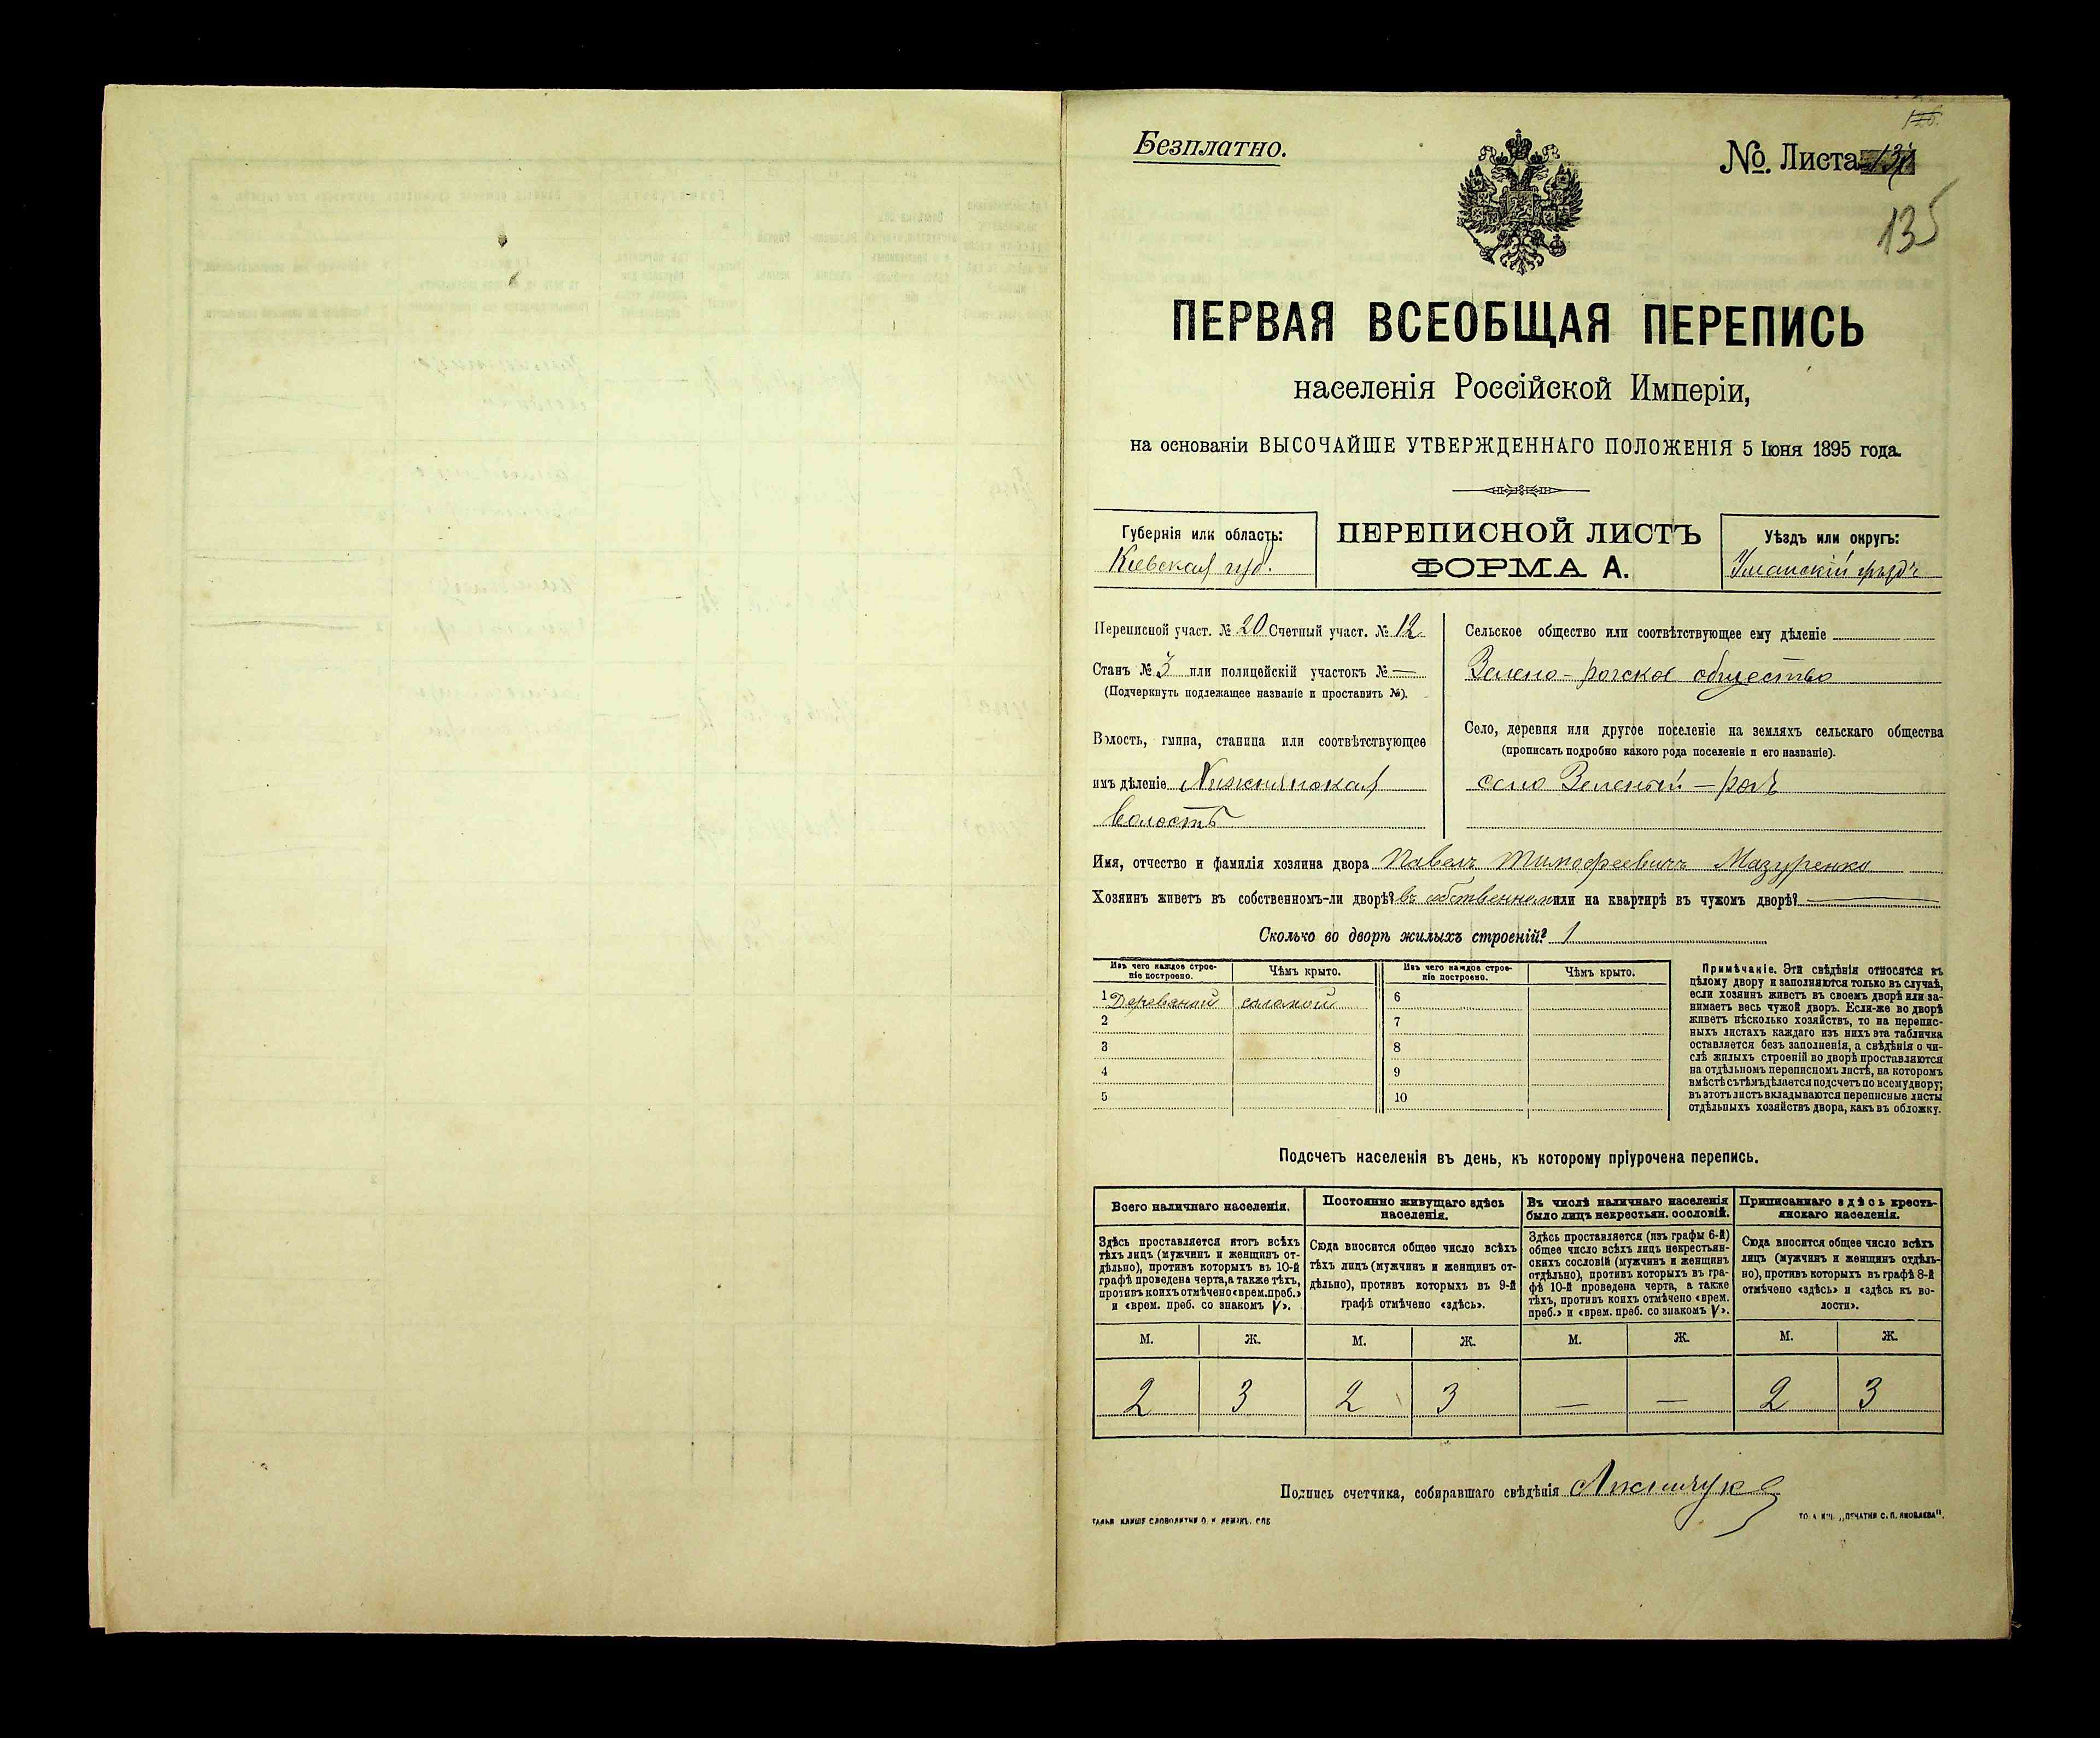 Безплатно.
№. Листа
135
ПЕРВАЯ ВСЕОБЩАЯ ПЕРЕПИСЬ
населенія Россійской Имперіи,
на основаніи ВЫСОЧАЙШЕ УТВЕРЖДЕННАГО ПОЛОЖЕНІЯ 5 Іюня 1895 года.
Губернія или область:
Кіевская губ.
ПЕРЕПИСНОЙ ЛИСТЪ
ФОРМА А.
Уѣздъ или округъ:
Уманскій уѣздъ
Переписной участ. № 20 Счетный участ. № 12
Станъ № 3 или полицейскій участокъ № —
(Подчеркнуть подлежащее названіе и проставить №).
Волость, гмина, станица или соотвѣтствующее
имъ дѣленіе
волость
Сельское общество или соотвѣтствующее ему дѣленіе
Зелено-рогское общество
Село, деревня или другое поселеніе на земляхъ сельскаго общества
(прописать подробно какого рода поселеніе и его названіе).
село Зеленый-рогъ
Имя, отчество и фамилія хозяина двора Павелъ Тимофеевичъ Мазуренко
Хозяинъ живетъ въ собственномъ-ли дворѣ? въ собственномъ или на квартирѣ въ чужомъ дворѣ? —
Сколько во дворѣ жилыхъ строеній? 1
Изъ чего каждое строе-
ніе построено.
Чѣмъ крыто.
Изъ чего каждое строе-
ніе построено.
Чѣмъ крыто.
1 Деревяной соломой 6
2 7
3 8
4 9
5 10
Примѣчаніе. Эти свѣдѣнія относятся къ
цѣлому двору и заполняются только въ случаѣ,
если хозяинъ живетъ въ своемъ дворѣ или за-
нимаетъ весь чужой дворъ. Если-же во дворѣ
живетъ нѣсколько хозяйствъ, то на перепис-
ныхъ листахъ каждаго изъ нихъ эта табличка
оставляется безъ заполненія, а свѣдѣнія о чи-
слѣ жилыхъ строеній во дворѣ проставляются
на отдѣльномъ переписномъ листѣ, на которомъ
вмѣстѣ съ тѣмъ дѣлается подсчетъ по всему двору;
въ этотъ листъ вкладываются переписные листы
отдѣльныхъ хозяйствъ двора, какъ въ обложку.
Подсчетъ населенія въ день, къ которому пріурочена перепись.
Всего наличнаго населенія.
Здѣсь проставляется итогъ всѣхъ
тѣхъ лицъ (мужчинъ и женщинъ от-
дѣльно), противъ которыхъ въ 10-й
графѣ проведена черта, а также тѣхъ,
противъ коихъ отмѣчено «врем. преб.»
и «врем. преб. со знакомъ V».
Постоянно живущаго здѣсь
населенія.
Сюда вносится общее число всѣхъ
тѣхъ лицъ (мужчинъ и женщинъ от-
дѣльно), противъ которыхъ въ 9-й
графѣ отмѣчено «здѣсь».
Въ числѣ наличнаго населенія
было лицъ некрестьян. сословій.
Здѣсь проставляется (изъ графы 6-й)
общее число всѣхъ лицъ некрестьян-
скихъ сословій (мужчинъ и женщинъ
отдѣльно), противъ которыхъ въ гра-
фѣ 10-й проведена черта, а также
тѣхъ, противъ коихъ отмѣчено «врем.
преб.» и «врем. преб. со знакомъ V».
Приписаннаго здѣсь кресть-
янскаго населенія.
Сюда вносится общее число всѣхъ
лицъ (мужчинъ и женщинъ отдѣль-
но), противъ которыхъ въ графѣ 8-й
отмѣчено «здѣсь» и «здѣсь къ во-
лости».
М. Ж. М. Ж. М. Ж. М. Ж.
2 3 2 3 — — 2 3
Подпись счетчика, собиравшаго свѣдѣнія